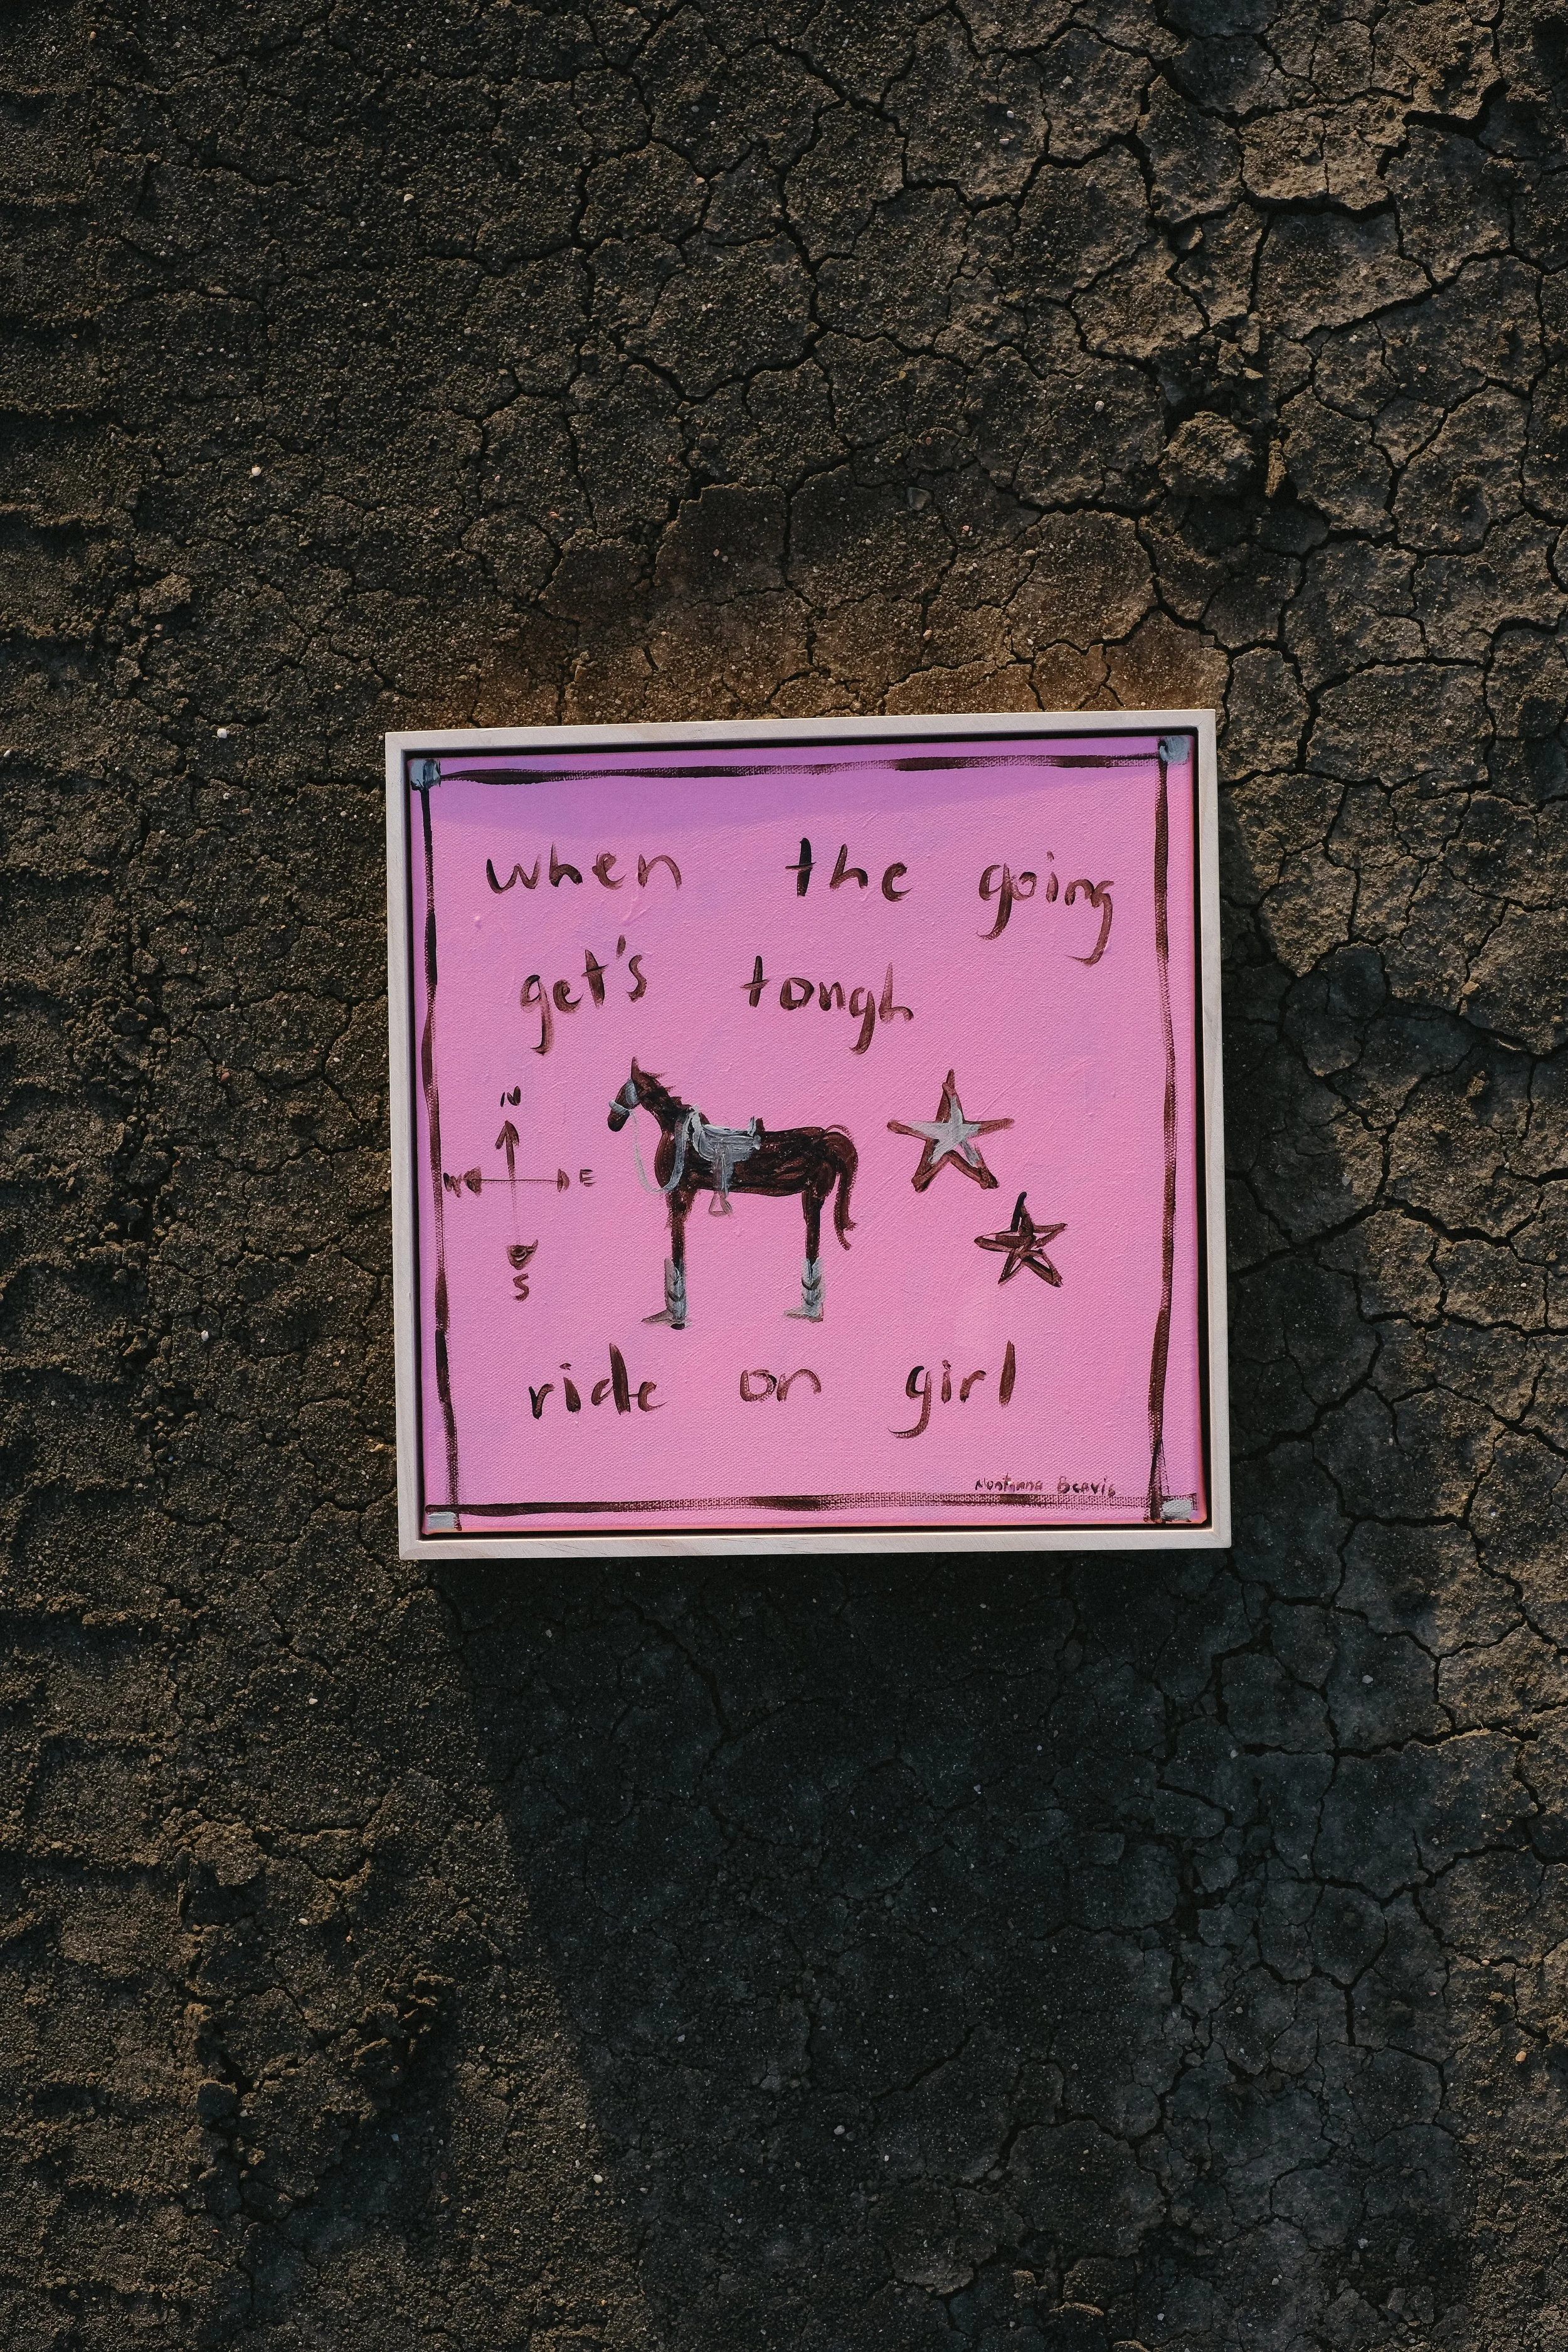 when the going
get's tough
N
W E
S
ride on girl
Montanna Beavis